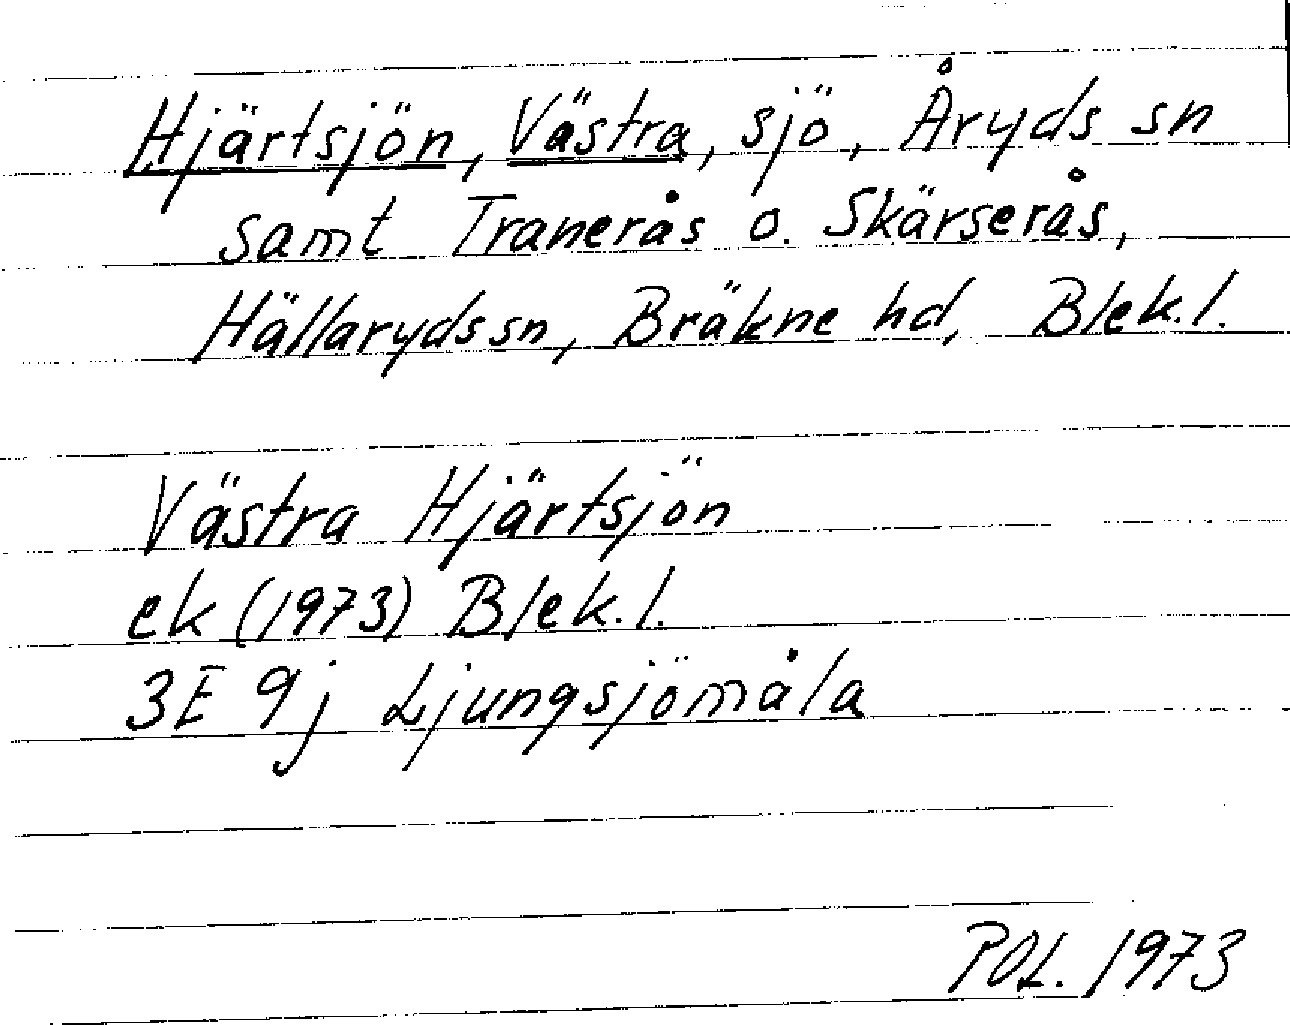 Hjärtsjön, Västra, sjö, Åryds sn
samt Tranerås o. Skärserås,
Hällaryds sn, Bräkne hd, Blek.l.
Västra Hjärtsjön
ek (1973) Blek.l.
3E 9j Ljungsjömåla
POL. 1973